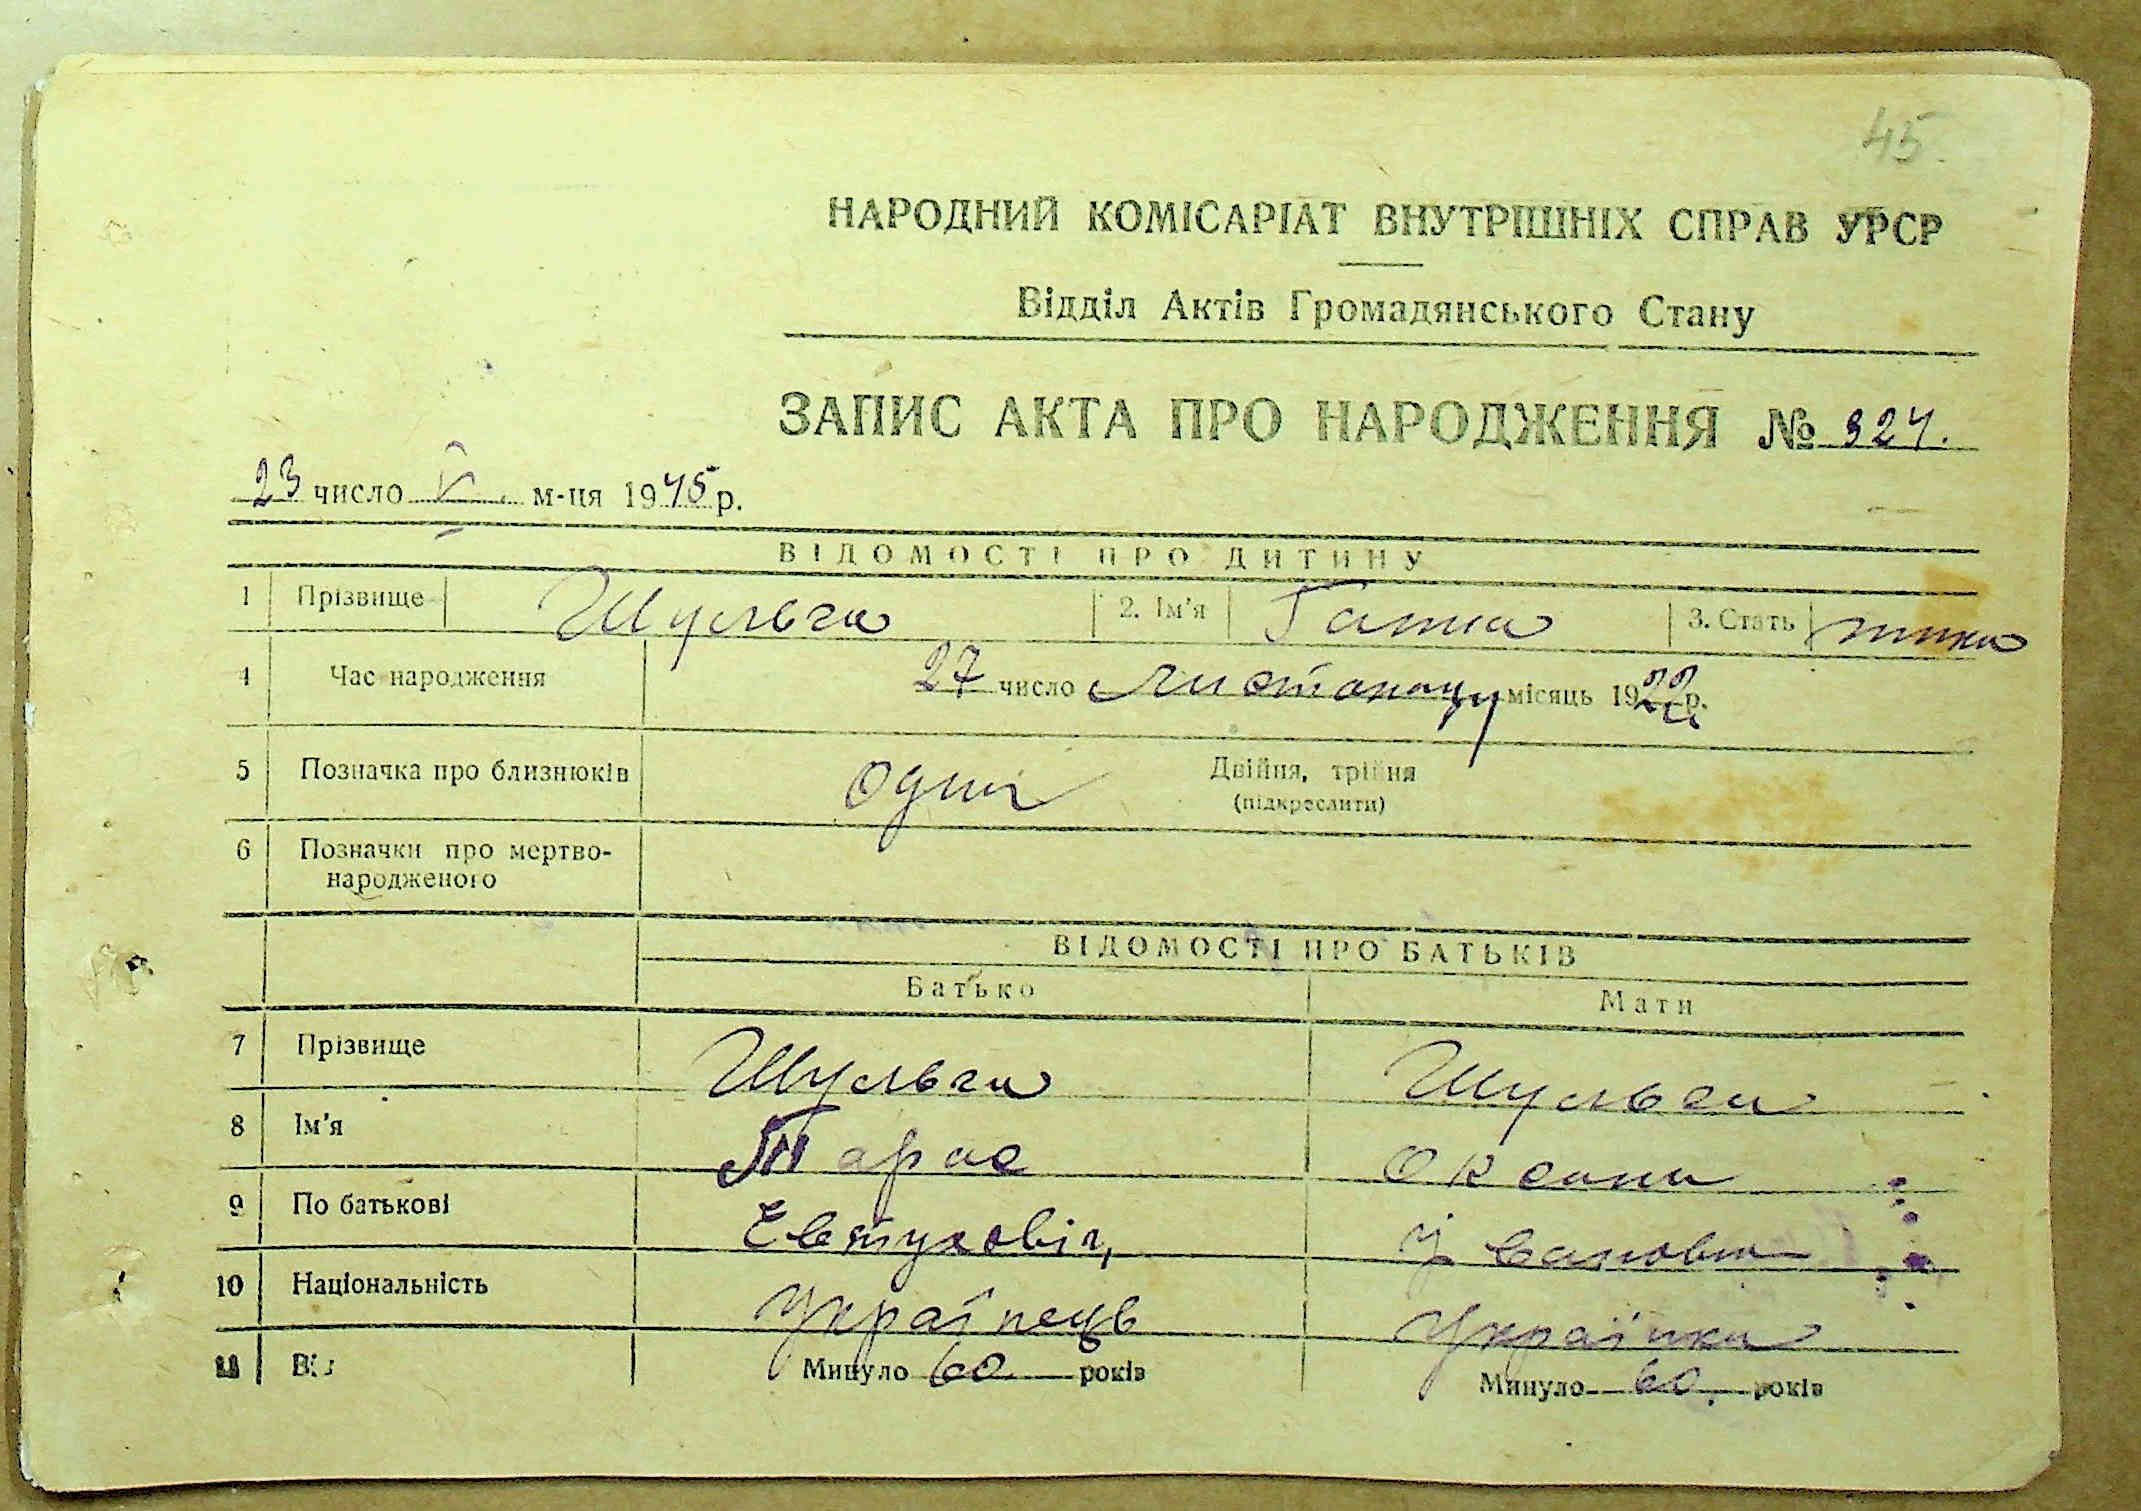 45.
НАРОДНИЙ КОМІСАРІАТ ВНУТРІШНІХ СПРАВ УРСР
Відділ Актів Громадянського Стану
ЗАПИС АКТА ПРО НАРОДЖЕННЯ № 324.
23 число V. м-ця 1945 р.
ВІДОМОСТІ ПРО ДИТИНУ
1 Прізвище Шульга 2. Ім'я Ганна 3. Стать
4 Час народження 27 число листопаду місяць 1922 р.
5 Позначка про близнюків Двійня, трійня
(підкреслити)
6 Позначки про мертво-
народженого
ВІДОМОСТІ ПРО БАТЬКІВ
Батько Мати
7 Прізвище Шульга Шульга
8 Ім'я Тарас Оксана
9 По батькові Євтухович Івановна
10 Національність Українець Українка
11 Вік Минуло 60 років Минуло 60. років